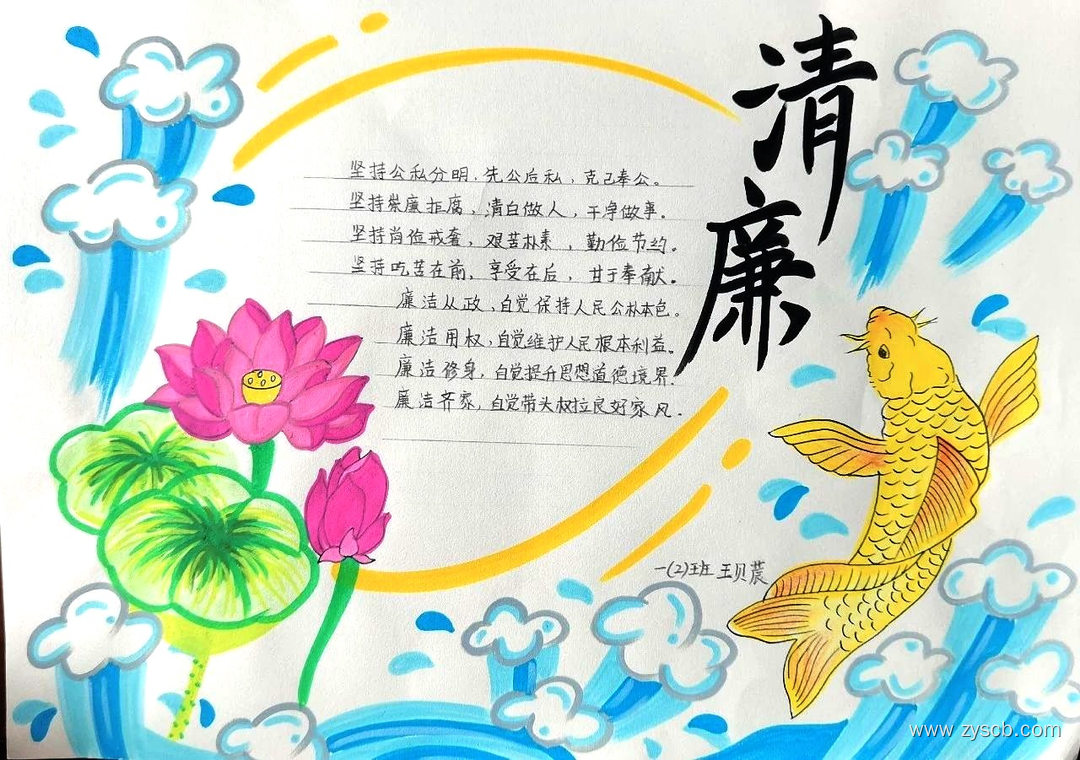 清廉
坚持公私分明，先公后私，克己奉公。
坚持崇廉拒腐，清白做人，干净做事。
坚持尚俭戒奢，艰苦朴素，勤俭节约。
坚持吃苦在前，享受在后，甘于奉献。
廉洁从政，自觉保持人民公朴本色。
廉洁用权，自觉维护人民根本利益。
廉洁修身，自觉提升思想道德境界.
廉洁齐家，自觉带头树立良好家风.
一(2)班 王贝莀
www.zyscb.com